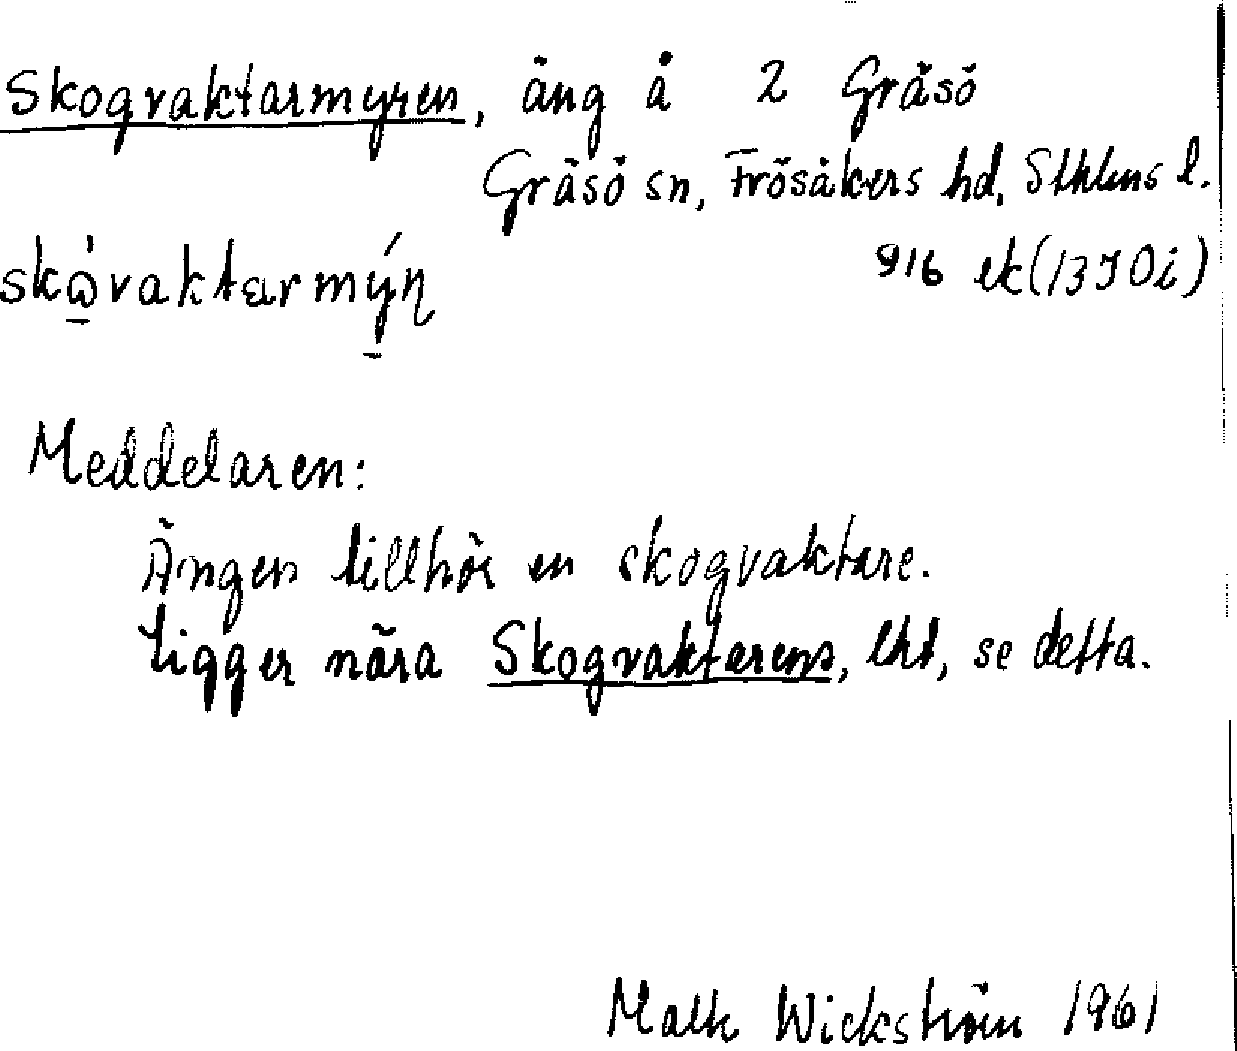 Skogvaktarmyren, äng å 2 Gräsö
Gräsö sn, Frösåkers hd, Sthlms l.
skὼvaktarmýn̥
916 ek (13 I 0i)
Meddelaren:
Ängen tillhör en skogvaktare.
Ligger nära Skogvaktarens, lht, se detta.
Wickström 1961